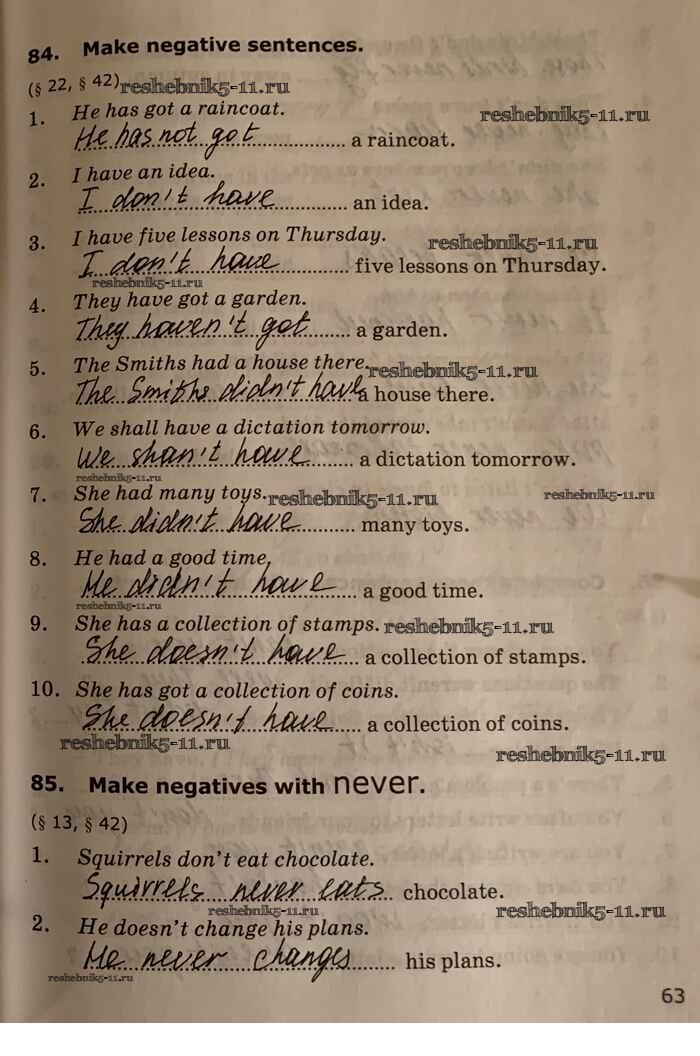 84. Make negative sentences.
(§ 22, § 42) reshebnik5-11.ru
1. He has got a raincoat. reshebnik5-11.ru
He has not got a raincoat.
2. I have an idea.
I don't have an idea.
3. I have five lessons on Thursday. reshebnik5-11.ru
I don't have five lessons on Thursday.
reshebnik5-11.ru
4. They have got a garden.
They haven't got a garden.
5. The Smiths had a house there. reshebnik5-11.ru
The Smiths didn't have a house there.
6. We shall have a dictation tomorrow.
We shan't have a dictation tomorrow.
reshebnik5-11.ru
7. She had many toys. reshebnik5-11.ru reshebnik5-11.ru
She didn't have many toys.
8. He had a good time.
He didn't have a good time.
reshebnik5-11.ru
9. She has a collection of stamps. reshebnik5-11.ru
She doesn't have a collection of stamps.
10. She has got a collection of coins.
She doesn't have a collection of coins.
reshebnik5-11.ru reshebnik5-11.ru
85. Make negatives with never.
(§ 13, § 42)
1. Squirrels don't eat chocolate.
Squirrels never eats chocolate.
reshebnik5-11.ru reshebnik5-11.ru
2. He doesn't change his plans.
He never changes his plans.
reshebnik5-11.ru
63